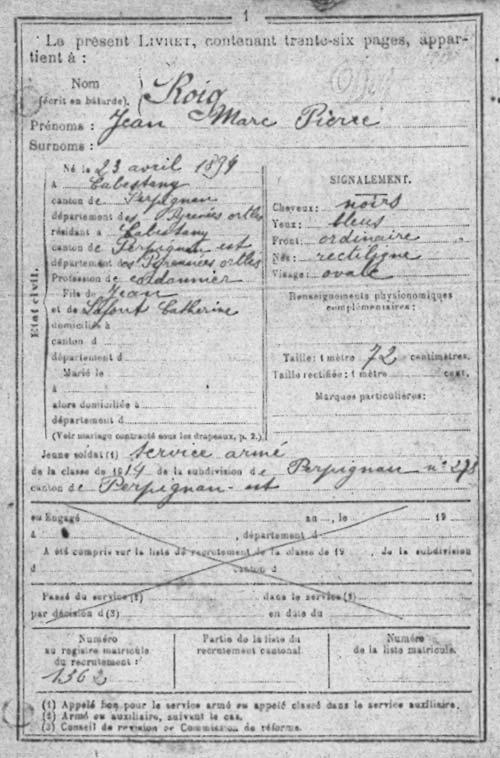 1
Le présent LIVRET, contenant trente-six pages, appar-
tient à :
Nom
(écrit en bâtarde). Roig
Prénoms : Jean Marc Pierre
Surnoms :
État civil.
Né le 23 avril 1894
à Cabestany
canton de Perpignan
département des Pyrénées Orles
résidant à Cabestany
canton de Perpignan est
département des Pyrénnées Orles
Profession de cordonnier
Fils de Jean
et de Lafont Catherine
domiciliés à
canton d
département d
Marié le
à
alors domiciliée à
département d
(Voir mariage contracté sous les drapeaux, p. 2.)
SIGNALEMENT.
Cheveux : noirs
Yeux : bleus
Front : ordinaire
Nez : rectiligne
Visage : ovale
Renseignements physionomiques
complémentaires :
Taille : 1 mètre 72 centimètres.
Taille rectifiée : 1 mètre cent.
Marques particulières :
Jeune soldat (1) service armé
de la classe de 1914 de la subdivision de Perpignan n° 278
canton de Perpignan-est
ou Engagé au , le 19
à , département d
A été compris sur la liste de recrutement de la classe de 19 , de la subdivision
d canton d
Passé du service (2) dans le service (2)
par décision d (3) en date du
Numéro
au registre matricule
du recrutement :
1362
Partie de la liste du
recrutement cantonal.
Numéro
de la liste matricule.
(1) Appelé bon pour le service armé ou appelé classé dans le service auxiliaire.
(2) Armé ou auxiliaire, suivant le cas.
(3) Conseil de revision or Commission de réforme.